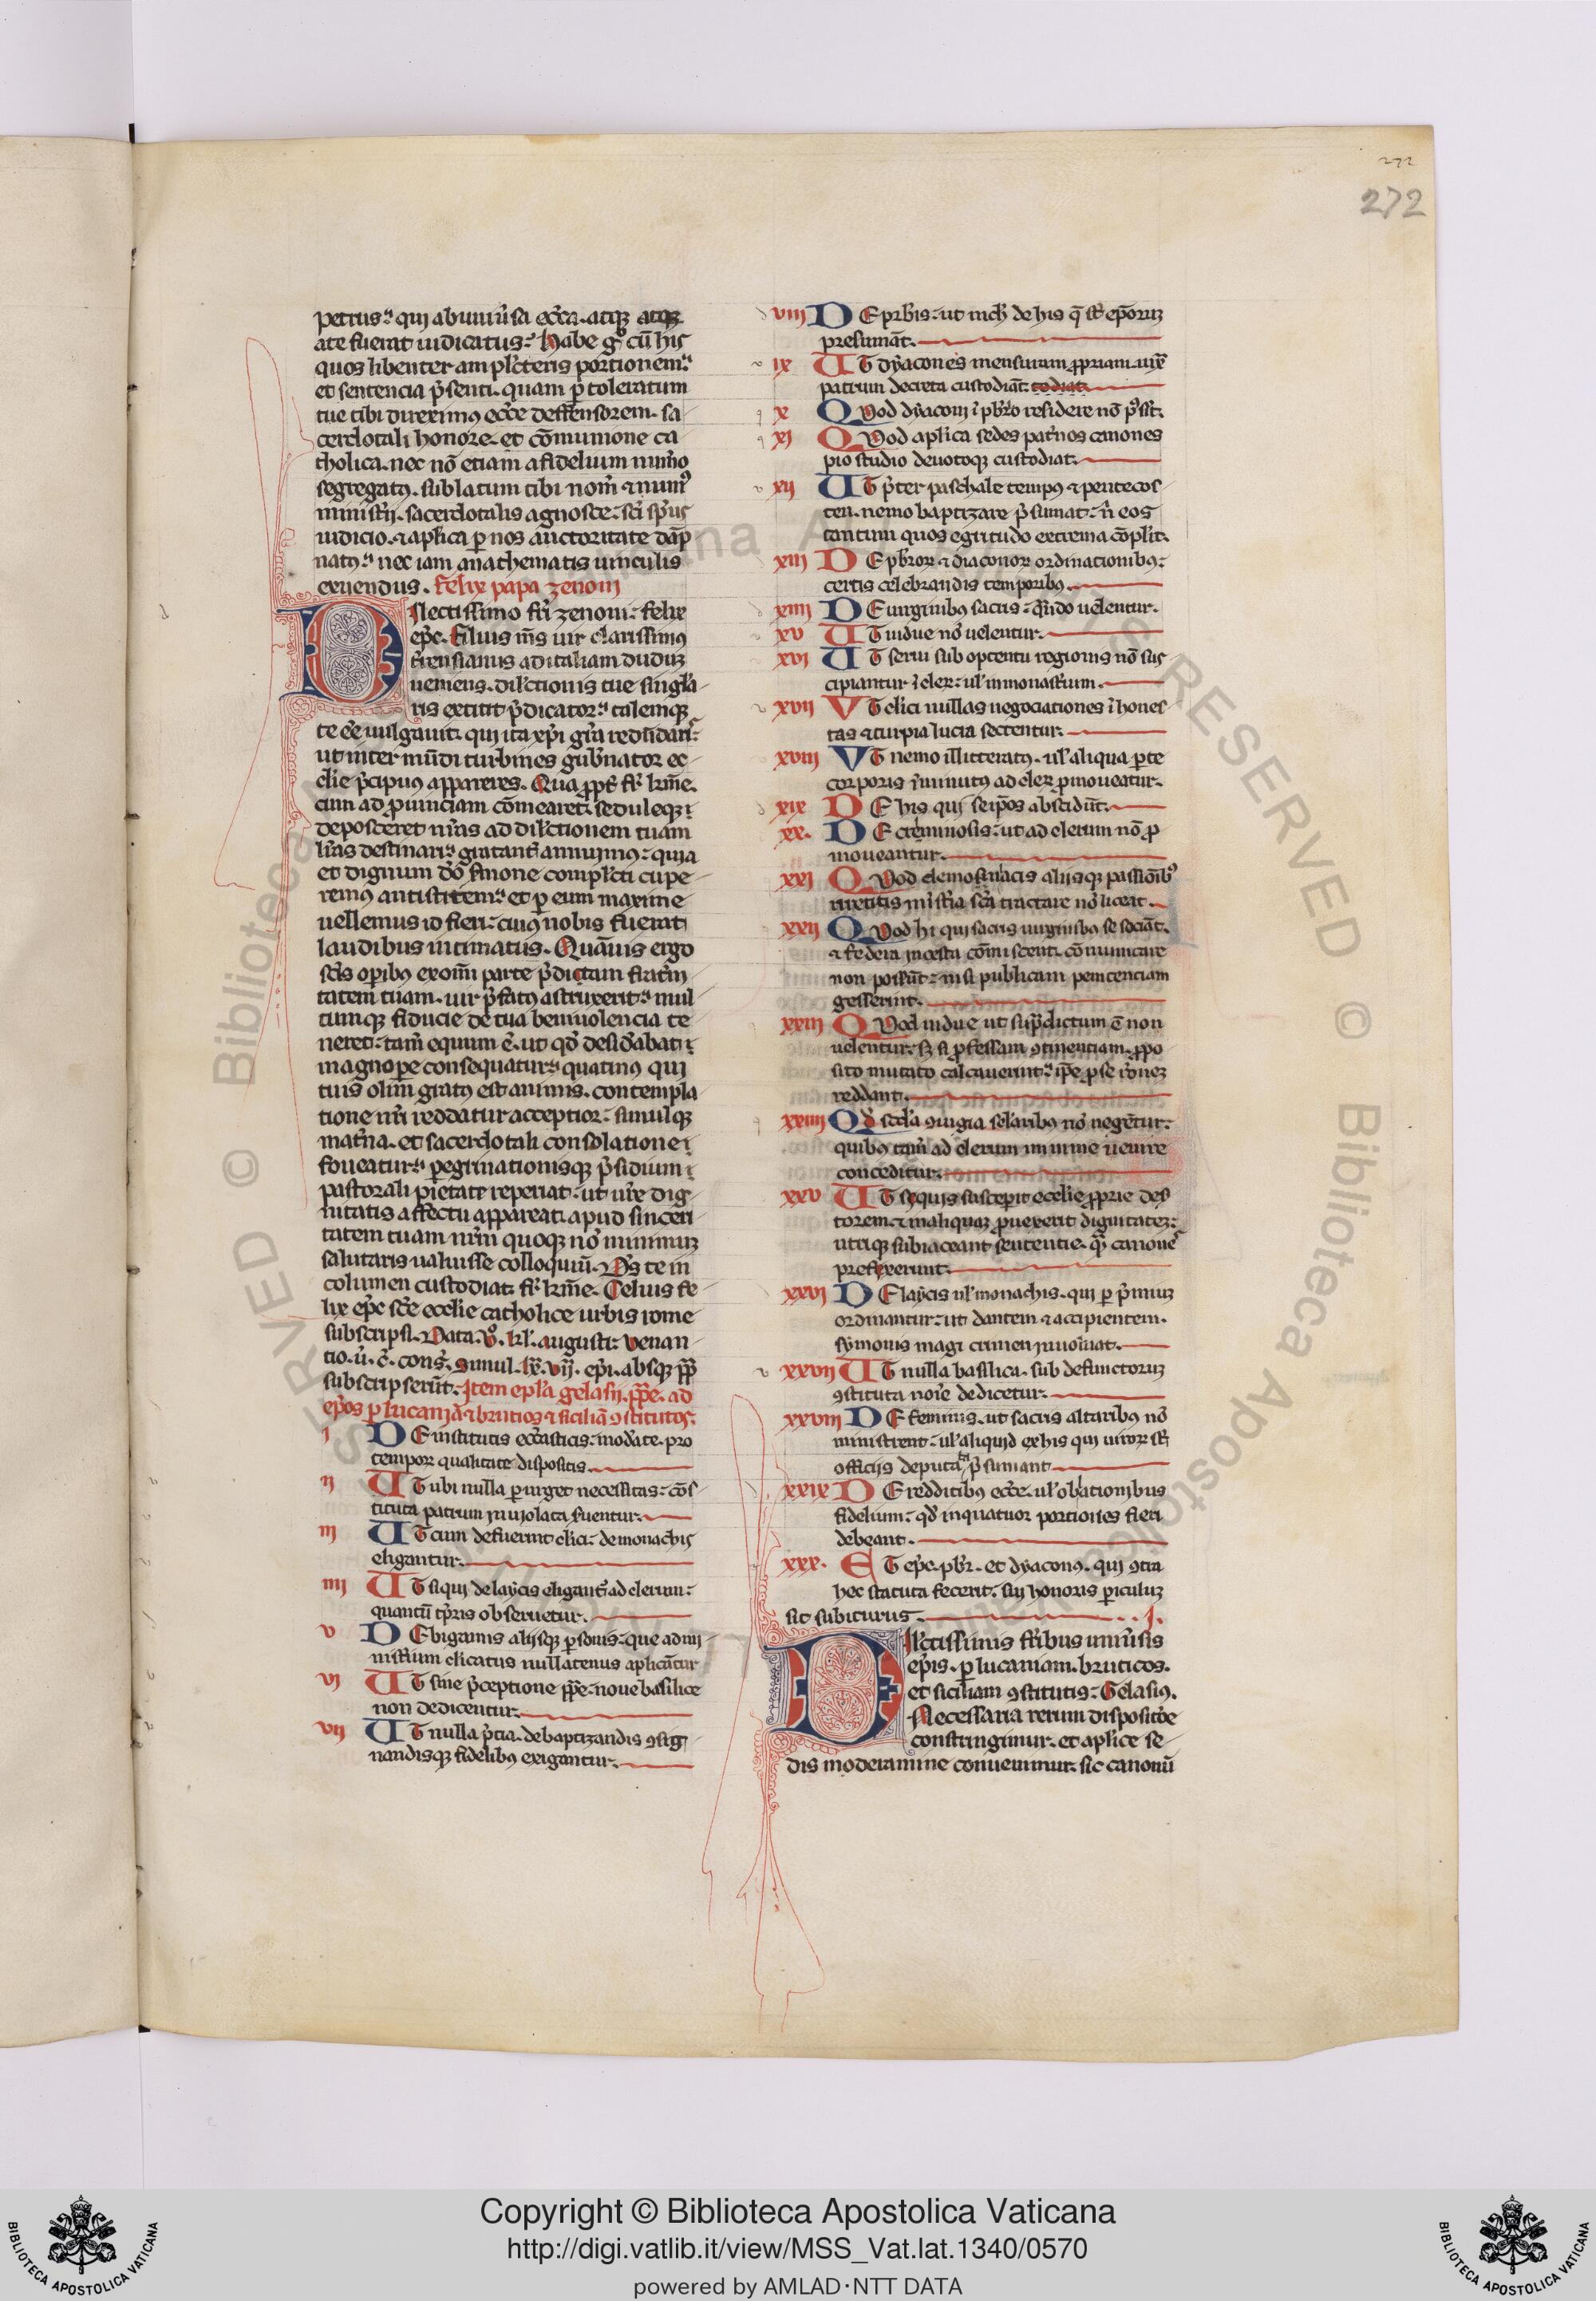 272
272
petrus. qui ab uniuersa ecc̄a. atqꝫ atqꝫ
ate fuerat iudicatus. Habe gͦ cū his
quos libenter amplcteris portionem.
et sentencia p̄senti. quam p toleratum
tue tibi direximus ecc̄e deffensorem. sa
cerdotali honore. et cōmunione ca
tholica. nec nō etiam a fidelium num̄o
segregatꝰ. sublatum tibi nom̄ ⁊ munꝰ
ministrij. sacerdotalis agnosce. sc̄i sp̄us
iudicio. ⁊ aplica p nos auctoritate dāp
natꝰ. nec iam anathematis uinculis
exuendus. Felix papa zenoni
Dilectissimo frī zenoni. felix
ep̄c. Filius nr̄s uir clarissimꝰ
t̄rensianus ad italiam duduꝫ
ueniens. dilctionis tue singla
ris extitit p̄dicator. talemqꝫ
te ēe uulgauit. qui ita xp̄i gr̄a redūdans.
ut inter mūdi turbines gub̄nator ec
clie p̄cipuus appareres. Qua ꝓpt̄ fr̄ kr̄me.
cum ad ꝓuinciam cōmearet. seduleqꝫ
deposceret nr̄as ad dilctionem tuam
lr̄as destinari. gratant̄ annuimꝰ. quia
et dignum dō s̄mone complcti cupe
remꝰ antistitem. et p eum maxime
uellemus id fieri. cuiꝰ nobis fuerat
laudibus intimatus. Quāuis ergo
sc̄is op̄ibꝰ ex om̄i parte p̄dictam frat̄ni
tatem tuam. uir p̄fatꝰ astruxerit. mul
tumqꝫ fiducie de tua beniuolencia te
neret. tam̄ equum ē. ut qd̄ desid̄abat
magnope consequatur. quatinꝰ qui
tuis olim gratꝰ est animis. contempla
tione nr̄i reddatur acceptior. simulqꝫ
mat̄na. et sacerdotali consolatione
foueatur. pegrinationisqꝫ p̄sidium
pastorali pietate reperiat. ut ur̄e dig
nitatis affectu appareat. apud sinceri
tatem tuam nr̄m quoqꝫ nō minimuꝫ
salutaris ualuisse colloquiū. Ds̄ te in
columen custodiat. fr̄ kr̄me. Celius fe
lix ep̄c sc̄e ecclie catholice urbis rome
subscripsi. Data .v. kl. augusti. Venan
tio. u. c. cons. Simul. lx. vij. ep̄i. absqꝫ pp̄
subscripserūt. Item epla gelasij. pp̄e. ad
ep̄os p lucaniā ⁊ brutios ⁊ siciliā ꝯstitutos.
i DE institutis ecc̄asticis. mod̄ate. pro
tempor qualitate dispositis.
ii UT ubi nulla p urget necessitas. cōs
tituta patrum inuiolata seruentur.
iii UT cum defuerint clici. de monachis
eligantur.
iiii UT si qui de laycis eligant̄ ad clerum.
quantū tp̄ris obseruetur.
v DE bigamis alijsqꝫ p sonis. que admi
nistrium clicatus nullatenus aplicātur
vi UT sine p̄ceptione pp̄e. noue basilice
non dedicentur.
vii UT nulla p̄tia. de baptizandis ꝯsig
nandisqꝫ fidelibꝰ exigantur.
viii DE prb̄is. ut nich̄ de his q̄ st̄ ep̄oruꝫ
presumāt.
ix UT dyacones mensuram ꝓpriam. iuxͣ
patrum decreta custodiāt. todiat
x Quod dyaconi ī pb̄ro residere nō pꝰsit.
xi Quod aplica sedes pat̄nos canones
pio studio deuotoqꝫ custodiat.
xii UT p̄ter paschale tempꝰ ⁊ pentecos
ten. nemo baptizare p̄sumat. n̄ eos
tantum quos egritudo extrema cōplit.
xiii DE pb̄ror ⁊ diaconor ordinationibꝰ.
certis celebrandis temporibꝰ.
xiiii DE uirginibꝰ sacris. qn̄do uelentur.
xv UT uidue nō uelentur.
xvi UT serui sub optentu regionis nō sus
cipiantur ī cler. ul in monast̄ium.
xvii VT clici nullas negociationes īhones
tas ⁊ turpia lucra sectentur.
xviii VT nemo illitteratꝰ. ul aliqua pte
corporis īminutꝰ ad cler pmoueatur.
xix DE his qui seipos abscidūt.
xx. DE criminosis. ut ad clerum nō ꝓ
moueantur.
xxi Quod demoniacis alijsqꝫ passiōibꝰ
irretitis mist̄ia sc̄a tractare nō liceat.
xxii Quod hi qui sacris uirginibꝰ se sociāt.
⁊ federa incesta cōmiscent. cōmunicare
non possūt. nisi publicam penitenciam
gesserint.
xxiii Quod uidue ut sup̄dictum ē non
uelentur. sꝫ si ꝓfessam ꝯtinentiam. ꝓpo
sito mutato calcauerint. ipe p se r̄oneꝫ
reddant.
xxiiii Qd̄ scd̄a ꝯiugia selaribꝰ nō negētur.
quibꝰ tam̄ ad clerum minime uenire
conceditur.
xxv UT sequis susceperit ecclie ꝓprie des
torem. ⁊ in aliquaꝫ ꝓuexerit dignitateꝫ.
uterqꝫ subiaceant sententie. quͣ canones
prefixerunt.
xxvi DE laycis ul monachis. qui p p̄miuꝫ
ordinantur. ut dantem ⁊ accipientem.
symonis magi crimen inuoluat.
xxvii UT nulla basilica. sub defunctoruꝫ
ꝯstituta noīe dedicetur.
xxviii DE feminis. ut sacris altaribꝰ nō
ministrent. ul aliquid ex his qui uiror st̄
officijs deputata p̄sumant
xxix DE redditibꝰ ecc̄e. ul oblationibus
fidelium. qd̄ in quatuor portiones fieri
debeant.
xxx. ET ep̄c. pb̄r. et dyaconꝰ. qui ꝯtra
hec statuta fecerit. sui honoris piculuꝫ
sit subiturus. .I.
Dilctissimis fr̄ibus uniu̅sis
ep̄is. p lucaniam. bruticos.
et siciliam ꝯstitutis. Gelasiꝰ.
Necessaria rerum dispositōe
constringimur. et aplice se
dis moderamine conuenimur. sic canonū
Copyright © Biblioteca Apostolica Vaticana
http://digi.vatlib.it/view/MSS_Vat.lat.1340/0570
powered by AMLAD·NTT DATA
BIBLIOTECA APOSTOLICA VATICANA
BIBLIOTECA APOSTOLICA VATICANA